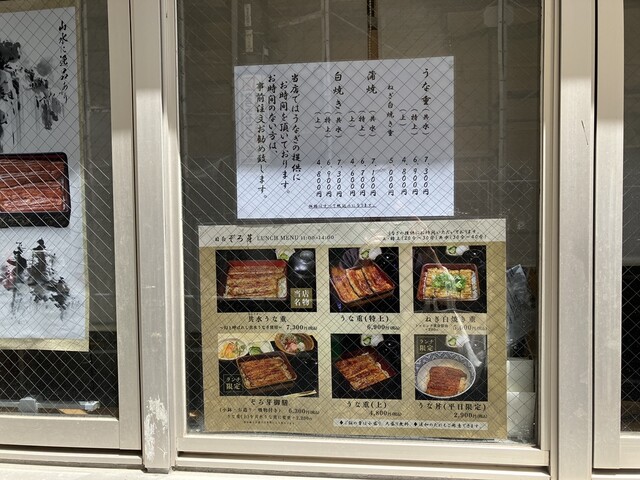 山水に逸品あり
うな重(共水) 7,300円
(特上) 6,900円
(上) 4,800円
ねぎ白焼き重 5,000円
蒲焼(共水) 7,100円
(特上) 6,700円
(上) 4,600円
白焼き(共水) 7,300円
(特上) 6,900円
(上) 4,800円
当店ではうなぎの提供に
お時間を頂いております。
お時間のない方は、
事前注文お勧め致します。
価格はすべて税込になります。
目白 ぞろ芽 LUNCH MENU 11:00-14:00
当店名物
共水うな重
7,300円(税込)
うな重(特上)
6,900円(税込)
ねぎ白焼き重
ランチ限定
ぞろ芽御膳
6,300円(税込)
うな重(上)
4,800円(税込)
ランチ限定
うな丼(平日限定)
2,900円(税込)